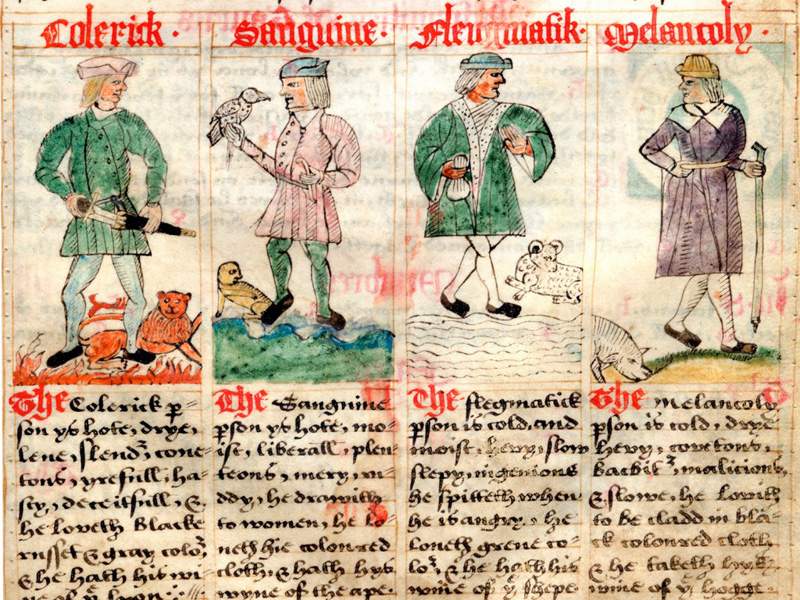 Colerick.
Sanguine.
Fleugmatik.
Melancoly.
The Colerick p̲
son ys hote, drye,
lene, slend², coue=
tous, yrefull, ha=
sty, deceitfull, &
he loveth blacke
russet & gray colo²,
& he hath his wi
ne of yᵉ lyon.
The Sanguine
p̲son ys hote, mo=
ist, liberall, plen=
teous, mery, ru=
ddy, he drawith
to women, he lo=
ueth hie coloured
cloth, & hath hys
wyne of the ape.
The flegmatick
p̲son is cold, and
moist, hevy, slow
slepy, ingenious
he spitteth when
he is angry, he
loueth grene co=
lo², & he hath his
wine of yᵉ shepe.
The melancoly
p̲son is cold, drye
hevy, covetous,
backbit², malicious,
& slowe, he loveth
to be cladd in bla=
ck coloured cloth
& he taketh hys
wine of yᵉ hogge.